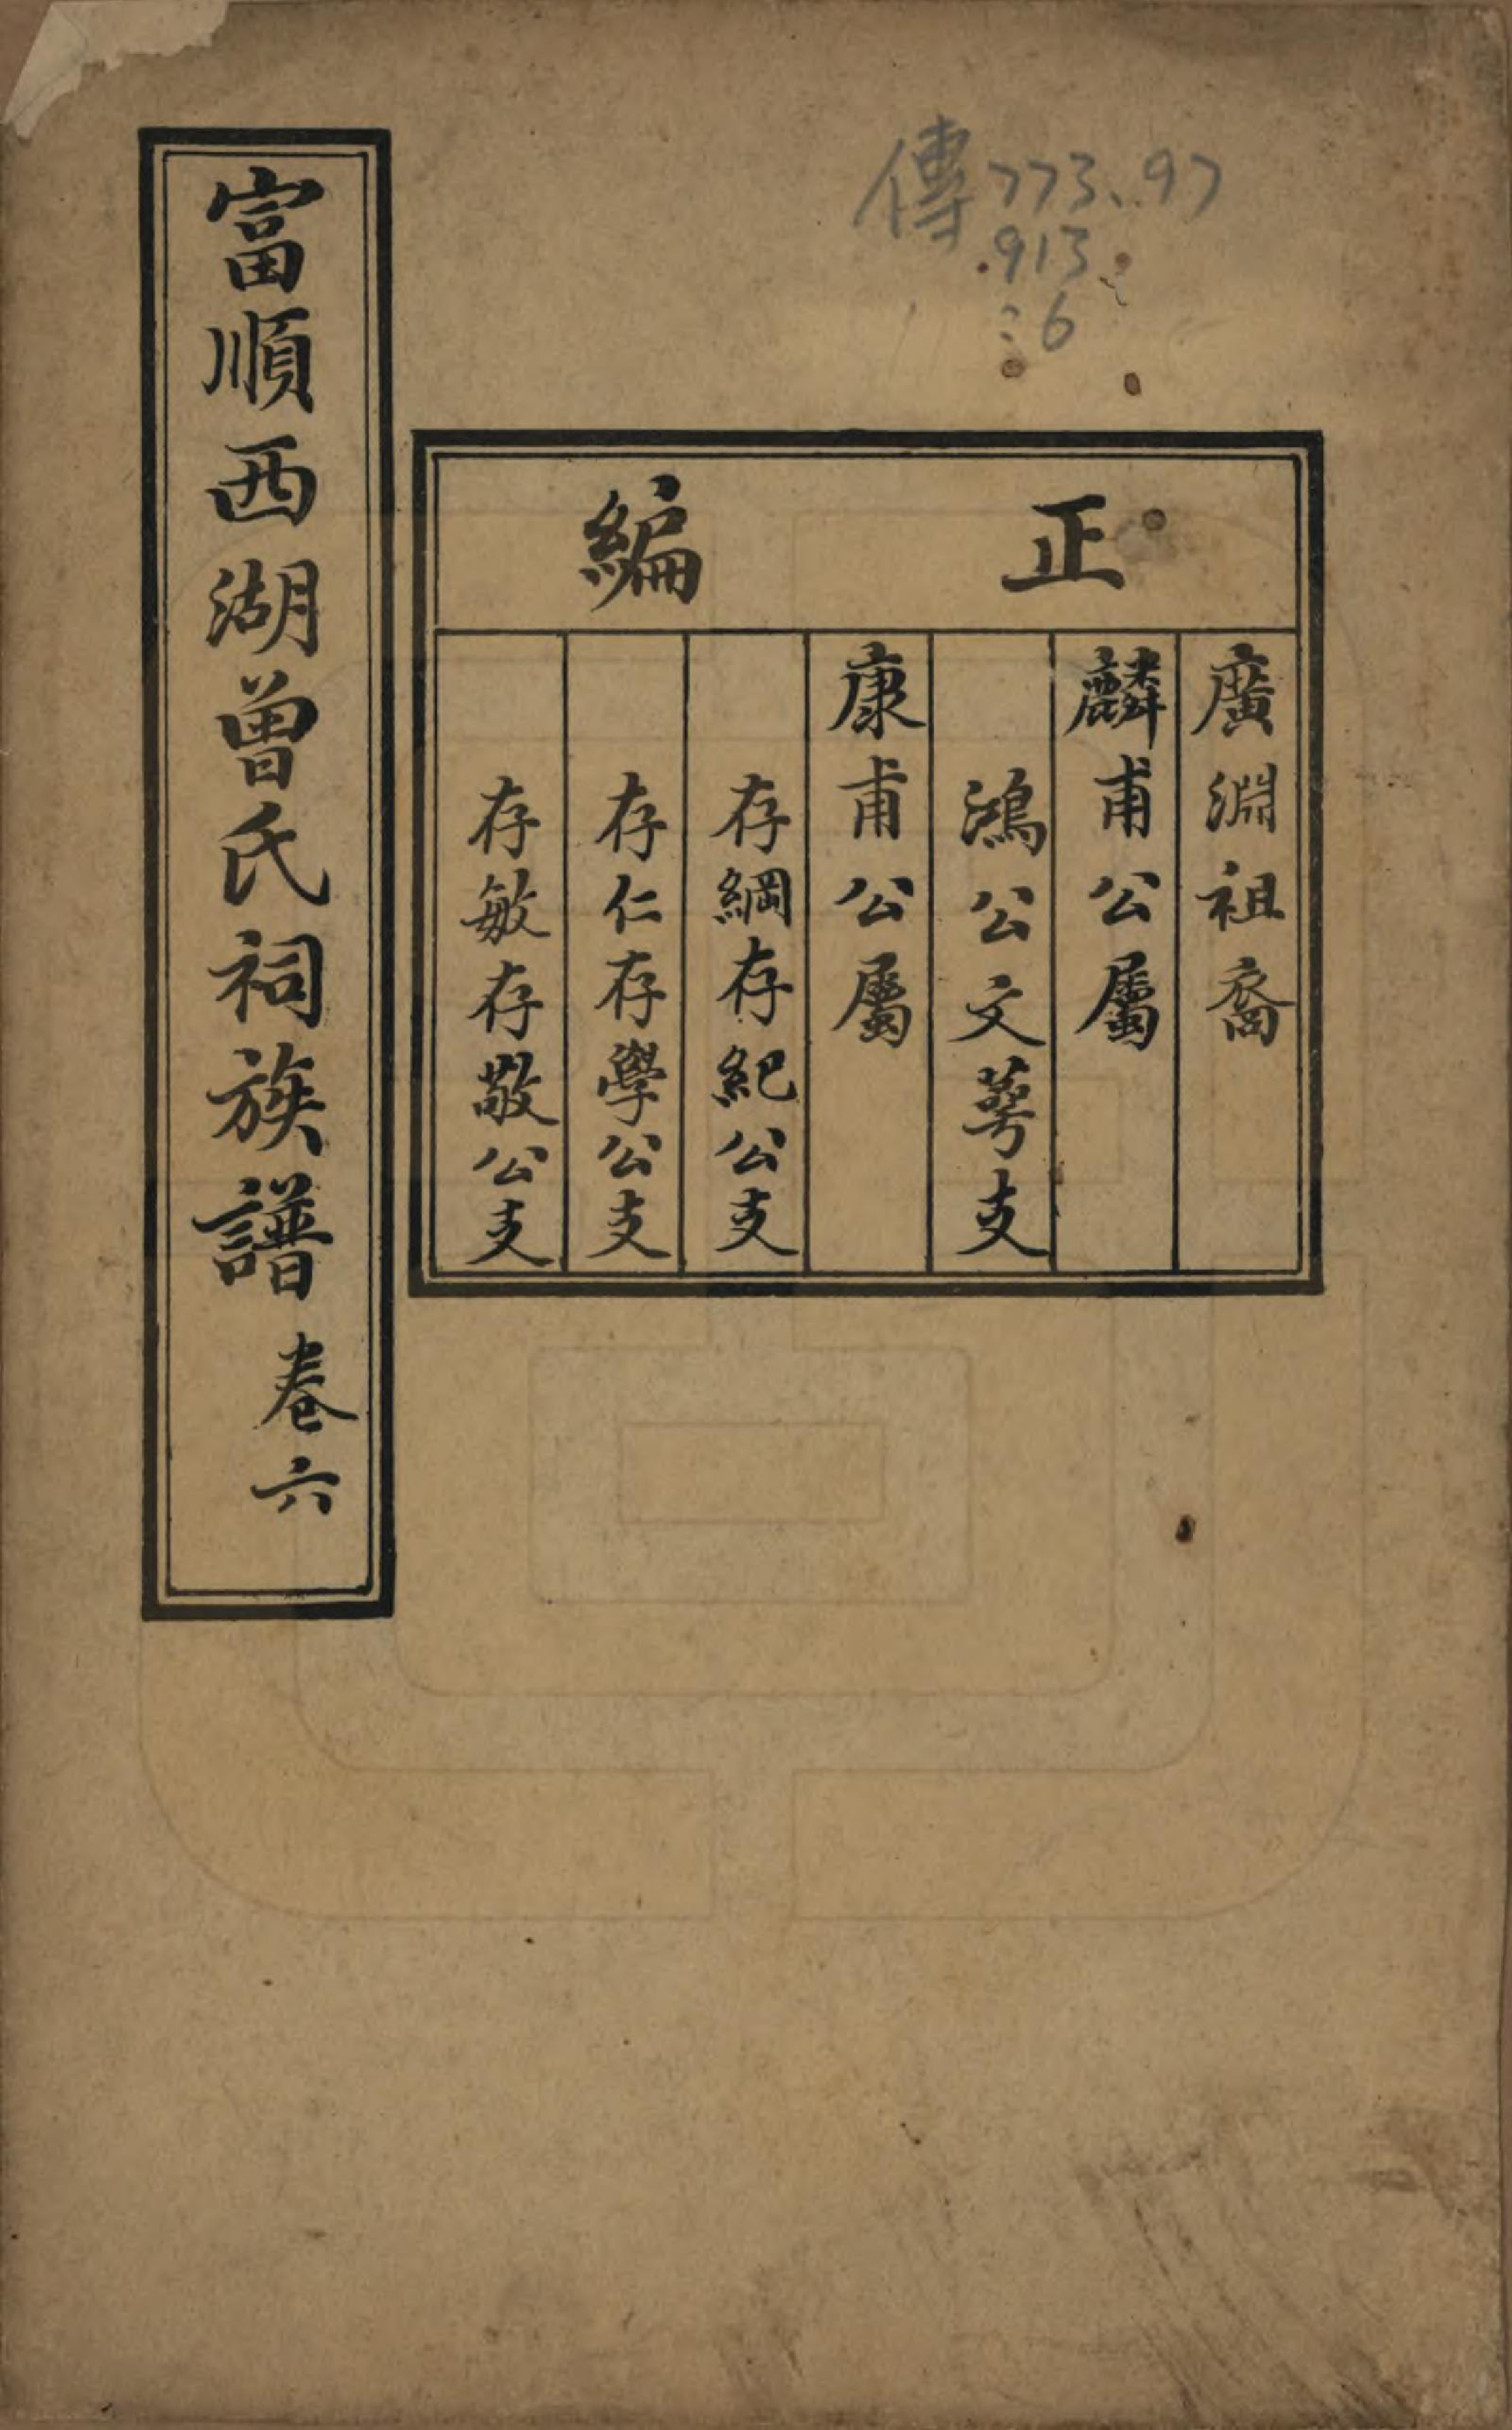 傳773.97
.913
:6
正編
廣淵祖裔
麟甫公屬
鴻公文蕚支
康甫公屬
存綱存紀公支
存仁存學公支
存敏存敬公支
富順西湖曾氏祠族譜 卷六